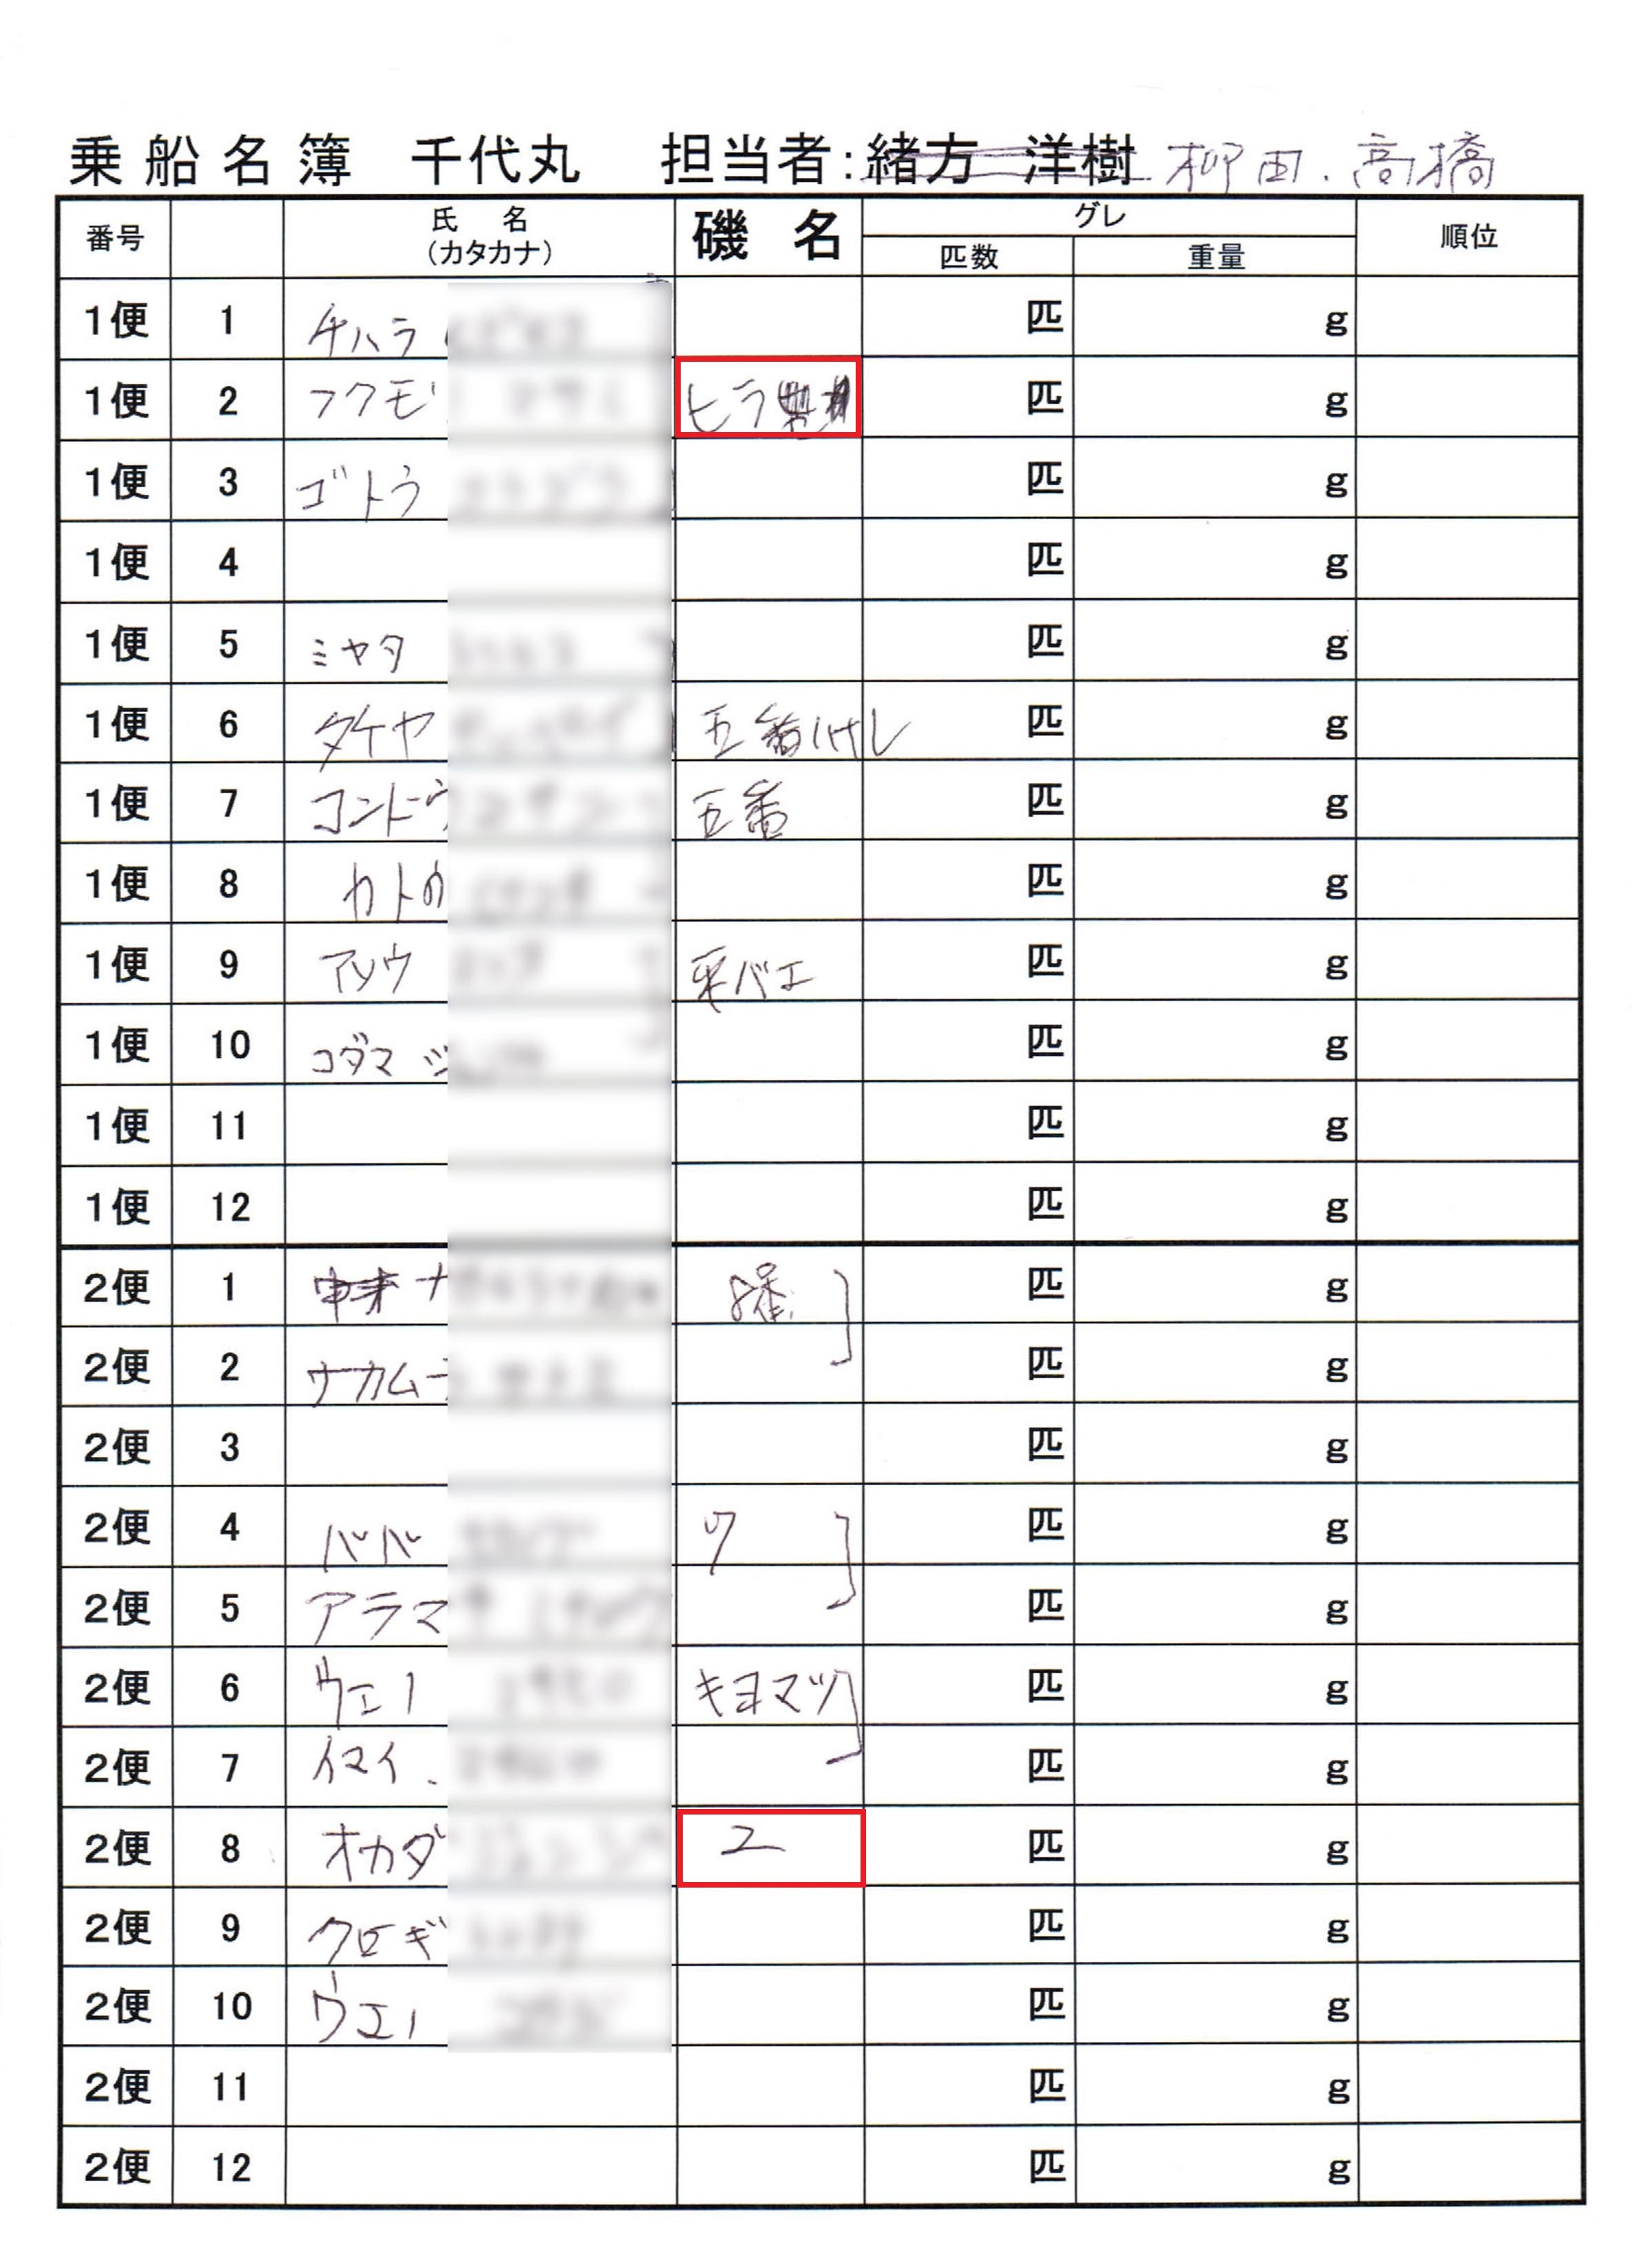 乗船名簿 千代丸 担当者:緒方 洋樹 柳田.高橋
番号 氏名 (カタカナ) 磯名 グレ 匹数 重量 順位
1便 1 チハラ 匹 g
1便 2 フクモ ヒラ 匹 g
1便 3 ゴトウ 匹 g
1便 4 匹 g
1便 5 ミヤタ 匹 g
1便 6 タケヤ 五番ハナレ 匹 g
1便 7 コンドウ 五番 匹 g
1便 8 カトウ 匹 g
1便 9 アソウ 平バエ 匹 g
1便 10 コダマ 匹 g
1便 11 匹 g
1便 12 匹 g
2便 1 ナ 匹 g
2便 2 サカム 匹 g
2便 3 匹 g
2便 4 ババ ワ 匹 g
2便 5 アラマ 匹 g
2便 6 ウエノ キヨマツ 匹 g
2便 7 イマイ 匹 g
2便 8 オカダ 匹 g
2便 9 クロギ 匹 g
2便 10 ウエノ 匹 g
2便 11 匹 g
2便 12 匹 g